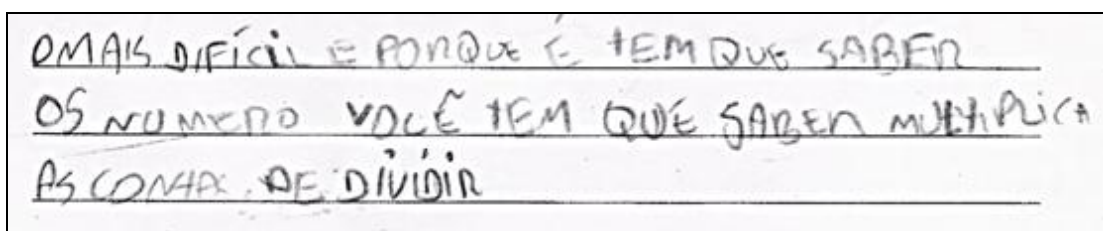 OMAIS DIFÍCIL E PORQUE É TEM QUE SABER
OS NUMERO VOCÊ TEM QUE SABER MULTIPLICA
AS CONTAS DE DIVIDIR